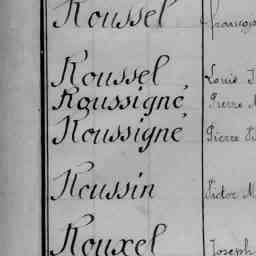 Roussel
Roussel Louis
Roussigné Pierre
Roussigné Pierre
Roussin Victor
Rouxel Joseph